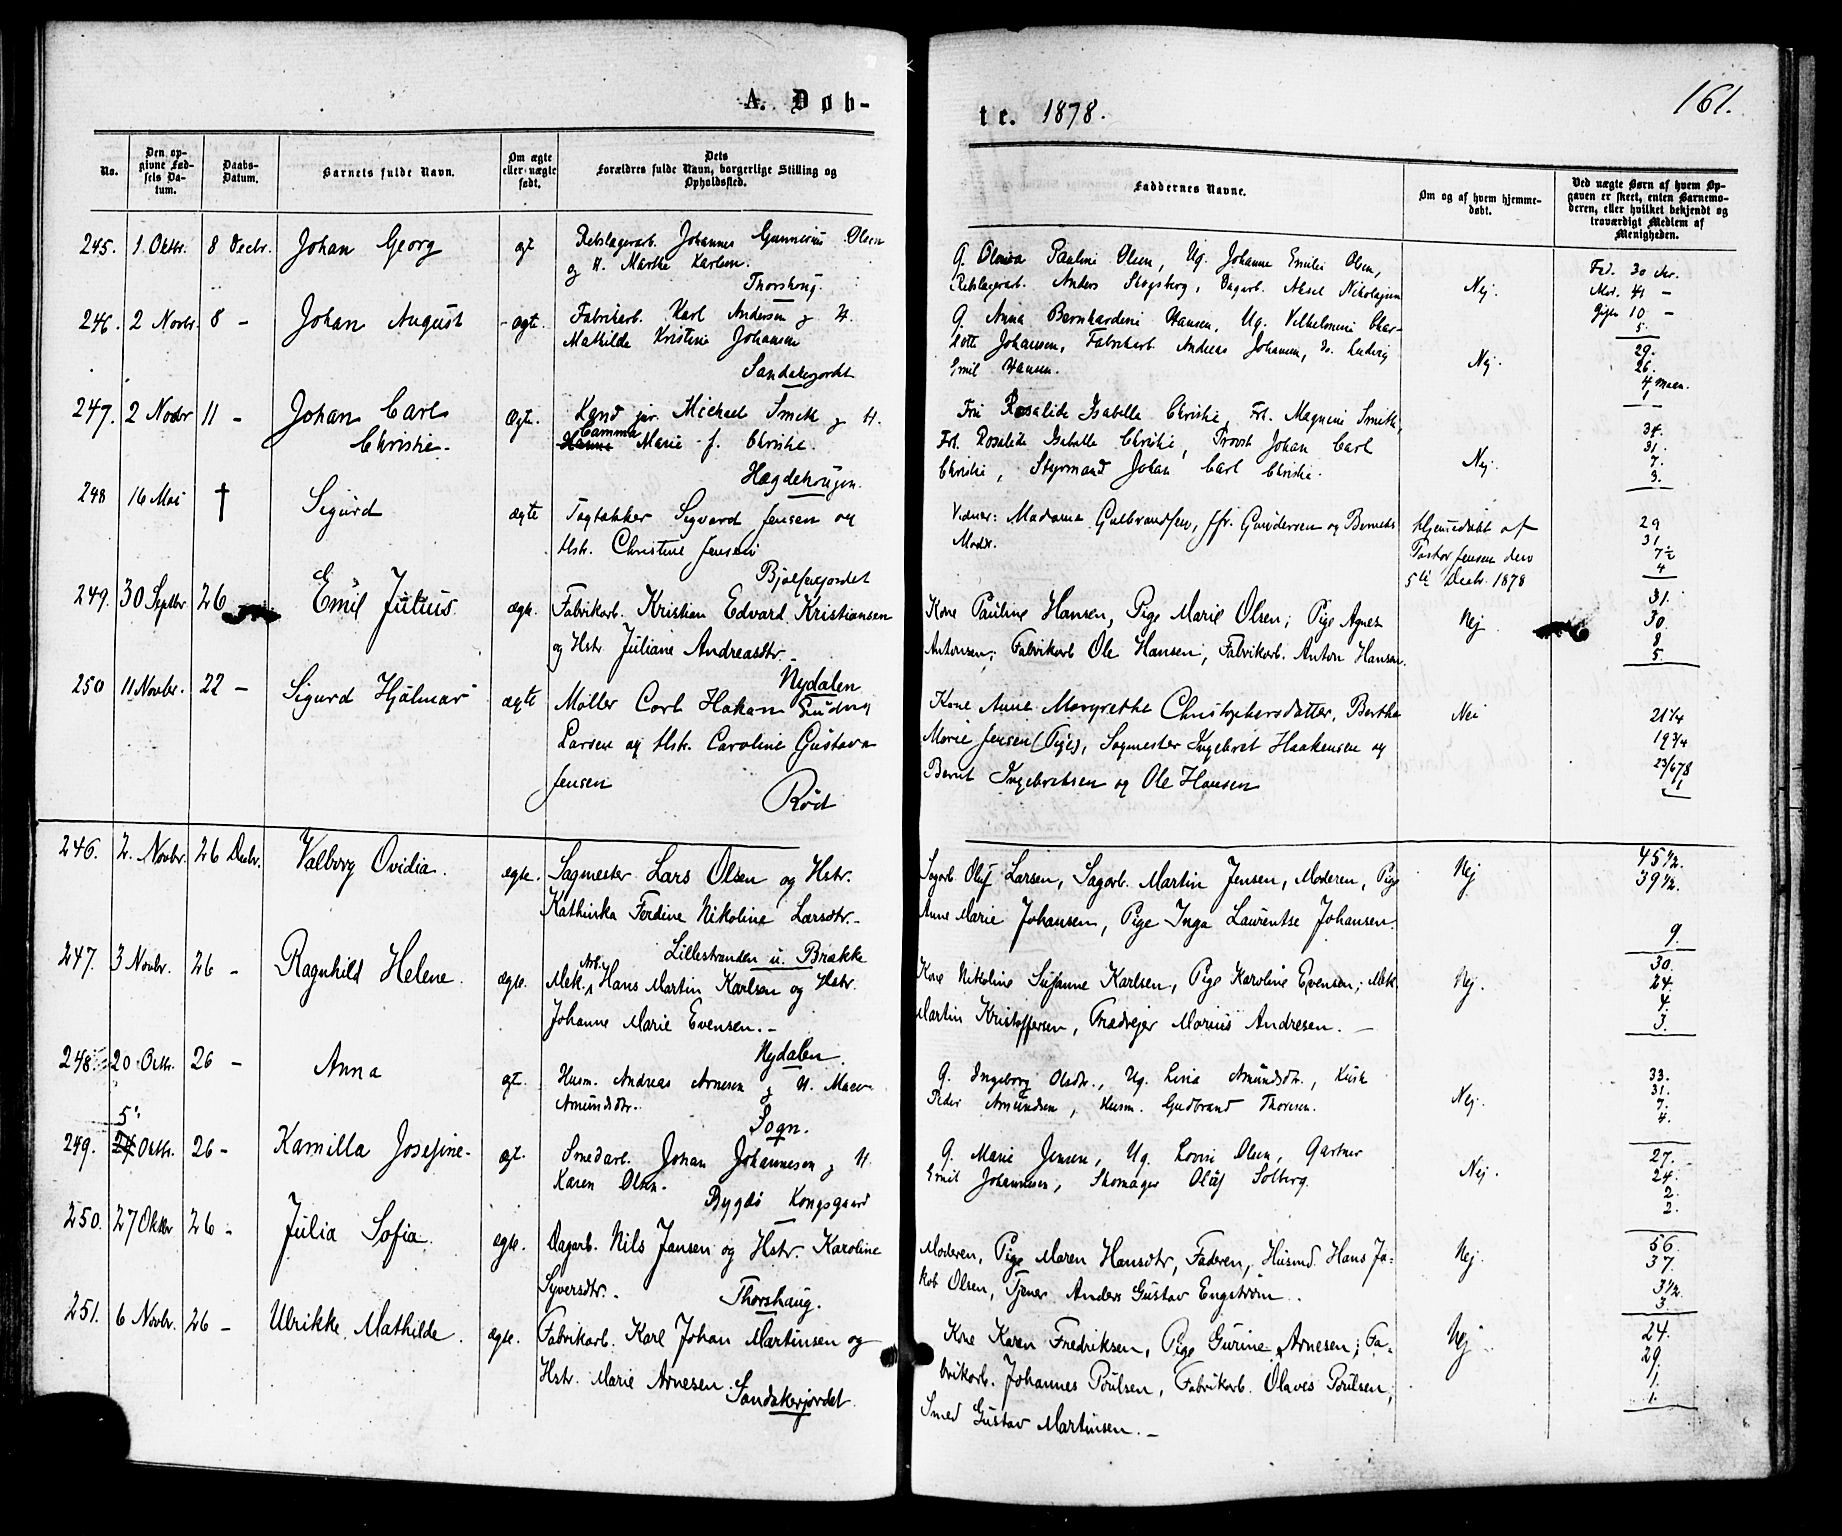 A. Døb-
te. 1878.
161.
No.
Den op-
givne Fød-
sels Da-
tum.
Daabs-
Datum.
Barnets fulde Navn.
Om ægte
eller uægte
født.
Dets
Forældres fulde Navn, borgerlige Stilling og
Opholdssted.
Faddernes Navne.
Om og af hvem hjemme-
døbt.
Ved uægte Børn af hvem Op-
gaven er skeet, enten Barnemo-
deren, eller hvilket bekjendt og
troværdigt Medlem af
Menigheden.
245. 1 Oktbr. 8 Decbr. Johan Georg ægt. Rebslagerarb. Johannes Gunnerius Olsen
og H. Marthe Karlsen.
Thorshoug.
G. Olava Pauline Olsen, Ug. Johanne Emilie Olsen,
Rebslagerarb. Anders Skogsberg, Dagarb. Aksel Nikolajsen
Nej.
Fad. 30 Aar.
Mod. 41 –
Gifte 10 –
5.
246. 2 Novbr. 8 – Johan August ægte. Fabrikarb. Karl Andersen og H.
Mathilde Kristine Johansen
Sandakerjordet
G. Anna Bernhardine Hansen, Ug. Vilhelmine Char-
lotte Johansen, Fabrikarb. Andreas Johansen, do. Ludvig
Emil Hansen.
Nej.
29.
26.
4 Maan.
1
247. 2 Novbr 11 – Johan Carl
Christie. Ægte. Kand. jur. Michael Smith og H.
Hanne Camma Marie f. Christie.
Hægdehougen.
Fru Rosalide Isabella Christie, Frk. Magnine Smith,
Frk. Rosalide Isabella Christie, Provst Johan Carl
Christie, Styrmand Johan Carl Christie.
Nej.
34.
31.
7.
3.
248 16 Mai † Sigurd ægte Tagtækker Sigvard Jensen og
Hstr. Christine Jensen
Bjølsenjordet
Vidner: Madame Gulbrandsen, Jfr. Gundersen og Barnets
Moder.
Hjemmedøbt af
Pastor Jensen den
5te Decbr. 1878
29
31
7½
4
249. 30 Septbr 26 Emil Julius. ægte. Fabrikarb. Kristian Edvard Kristiansen
og Hstr Juliane Andreasdtr.
Nydalen
Kone Pauline Hansen, Pige Marie Olsen; Pige Agnes
Antonsen; Fabrikarb Ole Hansen, Fabrikarb. Anton Hansen.
Nej
31.
30.
8
5.
250 11 Novbr. 22 – Sigurd Hjalmar ægte Møller Carl Hakon Ludvig
Larsen og Hstr. Caroline Gustava
Jensen
Röd
Kone Anne Margrethe Christophersdatter, Berthe
Marie Jensen (Pige), Sagmester Ingebret Haakensen og
Bernt Ingebretsen og Ole Hansen
Nei
21¼
19¾
23/6 78
1
246. 2. Novbr. 26 Decbr. Valborg Ovidia. ægte. Sagmester Lars Olsen og Hstr.
Kathinka Ferdine Nikoline Larsdtr. –
Lillestranden u. Brække
Sagarb. Oluf Larsen, Sagarb. Martin Jensen, Moderen, Pige
Anne Marie Johansen, Pige Inga Laurentse Johansen.
Nej
45½.
39½.
9.
247. 3 Novbr. 26 – Ragnhild Helene. ægte. Mek. Arb. Hans Martin Karlsen og Hstr.
Johanne Marie Evensen. –
Nydalen.
Kone Nikoline Susanne Karlsen, Pige Karoline Evensen; Mek.
Martin Kristoffersen, Traadvejer Marius Andresen. –
Nej.
30.
24.
4.
3.
248. 20 Oktbr. 26 – Anna ægt. Husm. Andreas Arnesen og H. Maren
Amundsdtr.
Sogn.
G. Ingeborg Olsdtr., Ug. Lina Amundsdtr., Kusk
Peder Amundsen, Husm. Gudbrand Thoresen.
Nej.
33.
31.
7.
4.
249. 5. 24 Oktbr. 26 – Kamilla Josefine. ægt. Smedarb. Johan Johannesen og H.
Karen Olsen.
Bygdö Kongsgaard
G. Marie Jensen, Ug. Lovise Olsen, Gartner
Emil Johannesen, Skomager Olaf Solberg.
Nej.
27.
24.
2.
2.
250. 27 Oktbr 26 – Julia Sofia. ægte. Dagarb. Nils Jansen og Hstr. Karoline
Syversdtr. –
Thorshaug.
Moderen, Pige Maren Hansdtr, Faderen, Husmd. Hans Ja-
kob Olsen, Tjener Anders Gustav Engström.
Nej.
56.
37.
3½.
3.
251. 6 Novbr. 26 – Ulrikke Mathilde. ægte. Fabrikarb. Karl Johan Martinsen og
Hstr. Marie Arnesen.
Sandakerjordet.
Kone Karen Fredriksen, Pige Gurine Arnesen; Fa-
brikarb. Johannes Poulsen, Fabrikarb. Olaves Poulsen,
Smed Gustav Martinsen. –
Nej
24.
29.
1.
1.